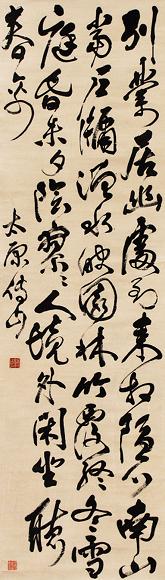 別業居幽處到來生隱心南山
當戶牖灃水映園林竹覆經冬雪
庭昏未夕陰寥々人境外閑坐聽
春禽
太原傅山